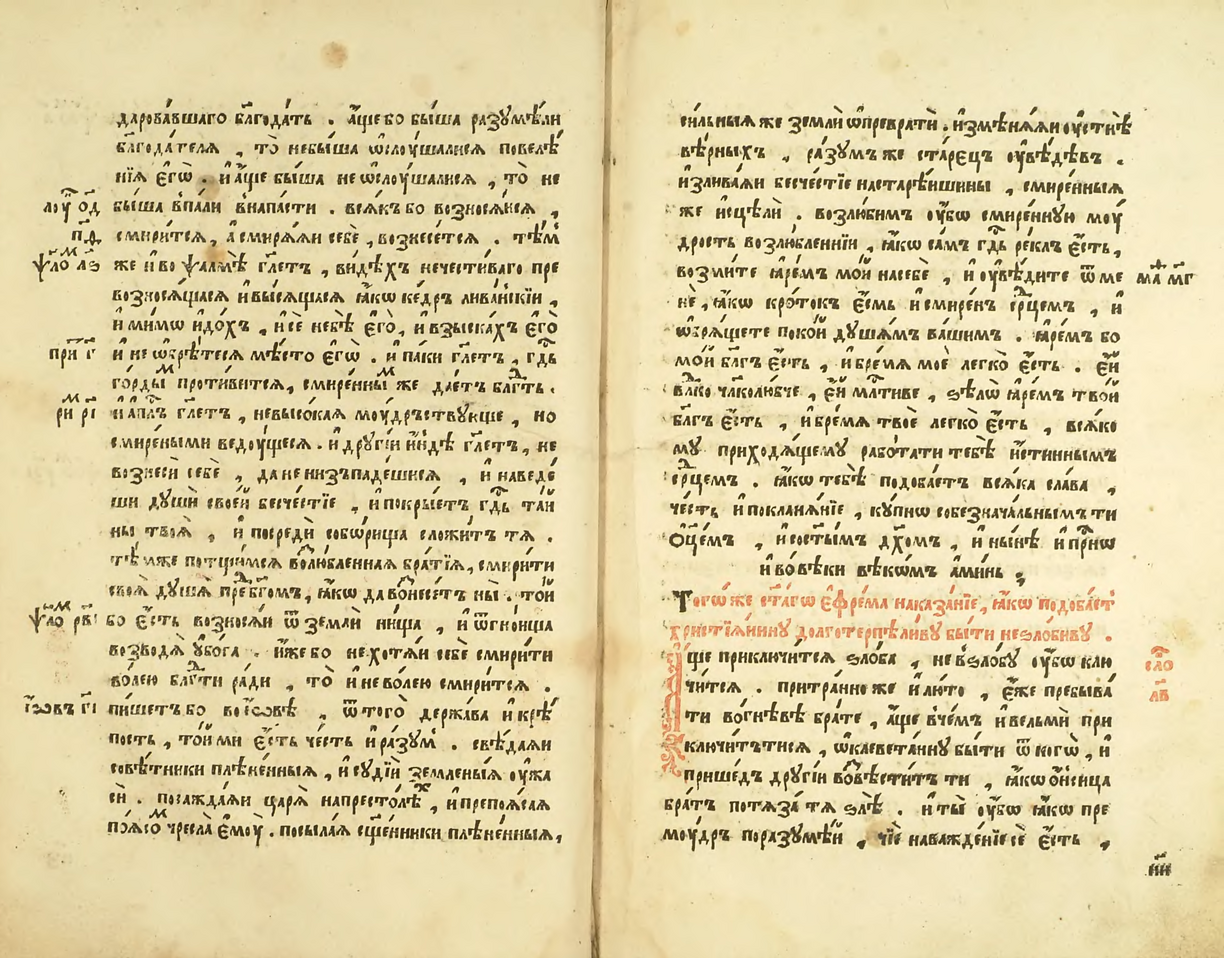 даровавшаго бл҃года́ть . а҆́ще бо бы́ша разꙋмѣ́ли
бл҃года́телѧ , то̀ небы́ша ѡ҆слоу́шалисѧ повелѣ́
нїѧ є҆гѡ̀ . и҆ а҆́ще бы́ша не ѡ҆слоу́шалисѧ , то̀ не
лоу҄ ѻ҃д бы́ша впа́ли внапа́сти . всѧ́къ бо возносѧ́йсѧ ,
п҃д смири́тсѧ, а҆ смирѧ́ѧи себѐ , вознесе́тсѧ . тѣ́м
ѱало лѕ же и҆ во ѱалмѣ̀ гл҃етъ , ви́дѣхъ нечести́ваго пре
возносѧ́щасѧ и҆ высѧ́щасѧ ꙗ҆́кѡ ке́дръ лива́нскїи ,
и҆ ми́мѡ и҆до́хъ , и҆ сѐ небѣ̀ є҆го̀, и҆ взыска́хъ є҆го̀
при г҃ и҆ не ѡ҆брѣ́тесѧ мѣ́сто є҆гѡ̀ . и҆ па́ки гл҃етъ , гд҇ь
го́рды проти́витсѧ, смире́нны же дае́тъ бл҃гть .
ри р҃і и҆ а҆п҇лъ гл҃етъ , невысо́каѧ моу́дръствꙋюще , но
смире́ными ведоу́щесѧ . и҆ дрꙋгі́и и҆́ндѣ гл҃етъ , не
вознесѝ себѐ , да не низъпаде́шисѧ , и҆ наведе́
ши дꙋшѝ свое́й бесче́стїе , и҆ покры́етъ гд҇ь та́й
ны твоѧ̀ , и҆ посредѝ собо́рища сложи́тъ тѧ .
тѣ́мже потщи́мсѧ возлю́бленнаѧ бра́тїѧ, смири́ти
своѧ̀ дꙋшѧ̀ пред бг҃омъ, ꙗ҆́кѡ да вознесе́тъ ны̀ . то́й
ѱало рв҃і бо є҆́сть возносѧ́и ѿ землѝ ни́ща , и҆ ѿгно́ища
возводѧ̀ ᲂу҆бо́га . и҆́же бо не хотѧ́и себѐ смири́ти
во́лею бл҃гти ра́ди , то̀ и҆ не во́лею смири́тсѧ .
і҆ѡвъ г҃і пи́шетъ бо во і҆́ѡвѣ , ѿ того̀ держа́ва и҆ крѣ́
пость , то́й ми є҆́сть че́сть и҆ ра́зꙋм . свѣ́даѧи
совѣ́тники плѣне́нныѧ , и҆ сꙋдїѝ земле́ныѧ оу҆жа
сѝ . посажда́ѧи царѧ̀ напресто́лѣх , и҆ препоѧ́саѧ
по́ѧсом чре́сла є҆моу̀ . посыла́ѧ сщ҃е́нники плѣне́нныѧ ,
си́льныѧ же землѝ ѡ҆превратѝ . и҆змѣнѧ́ѧи оу҆стнѣ̀
вѣ́рныхъ , ра́зꙋмъ же ста́рєцъ оу҆вѣ́дѣвъ .
и҆злива́ѧи бесче́стїе настарѣ́ишины , смире́нныѧ
же и҆сцѣлѝ . возлю́бимъ оу҆́бѡ смире́ннꙋю моу́
дрость возлю́бленнїи , ꙗ҆́кѡ са́мъ гд҇ь ре́клъ є҆́сть ,
возми́те ꙗ҆ре́мъ мо́й насебѐ , и҆ оу҆вѣ́дите ѿ ме мѳ҃ м҃г
нѐ , ꙗ҆́кѡ кро́токъ є҆́смь и҆ смире́нъ ср҃цемъ , и҆
ѡ҆брѧ́щете поко́й дꙋша́мъ ва́шимъ . ꙗ҆ре́мъ бо
мо́й бл҃гъ є҆́сть , и҆ бре́мѧ моѐ легко̀ є҆́сть . є҆́й
вл҃ко чл҃колю́бче , є҆́й мл҇тиве , ѕѣлѡ̀ ꙗ҆ре́мъ тво́й
бл҃гъ є҆́сть , и҆ бре́мѧ твоѐ легко̀ є҆́сть , всѧ́ко
мꙋ̀ приходѧ́щемꙋ рабо́тати тебѣ̀ и҆́стиннымъ
ср҃цемъ . ꙗ҆́кѡ тебѣ̀ подоба́етъ всѧ́ка сла́ва ,
че́сть и҆ поклонѧ́нїе , кꙋ́пнѡ собезнача́льнымъ ти
ѻ҆ц҃емъ , и҆ сос҃тымъ дх҃омъ , и҆ нн҃ѣ и҆ при́сно
и҆ вовѣ́ки вѣко́мъ а҆ми́нь ,
Того́ же ст҃аго є҆фре́ма наказа́нїе, ꙗ҆́кѡ подоба́ет
христїѧ́нинꙋ долготерпѣли́вꙋ бы́ти неѕло́бивꙋ .
Аще приключи́тсѧ ѕло́ба , не вѕло́бꙋ оу҆́бѡ клю сло
чи́тсѧ . притра́нно же и҆ лю́то , є҆́же пребыва́ л҃в
ти во гнѣ́вѣ бра́те , а҆́ще вче́мъ и҆ вельмѝ при
ключи́тътисѧ , ѡ҆клевета́ннꙋ бы́ти ѿ когѡ̀ , и҆
прише́дъ дрꙋгі́и возвѣсти́тъ ти , ꙗ҆́кѡ ѻ҆нси́ца
бра́тъ потѧза́ тѧ ѕлѣ̀ . и҆ ты̀ оу҆́бѡ ꙗ҆́кѡ пре
моу́дръ поразꙋмѣ́й , чїѐ наважде́нїе сѐ є҆́сть ,
н҃и